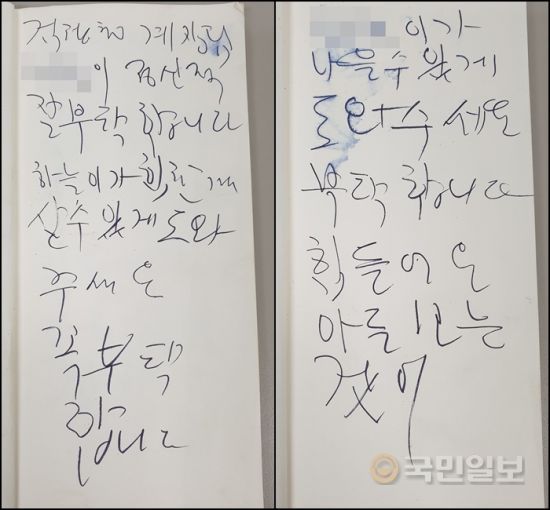 이 정신적
잘부탁 합니다
하늘이가
살수 있게 도와
주새요
꼭부탁
합니다
이가
나을수 있게
도와주세요
부탁 합니다
힘들어요
아들 보는
것이
국민일보